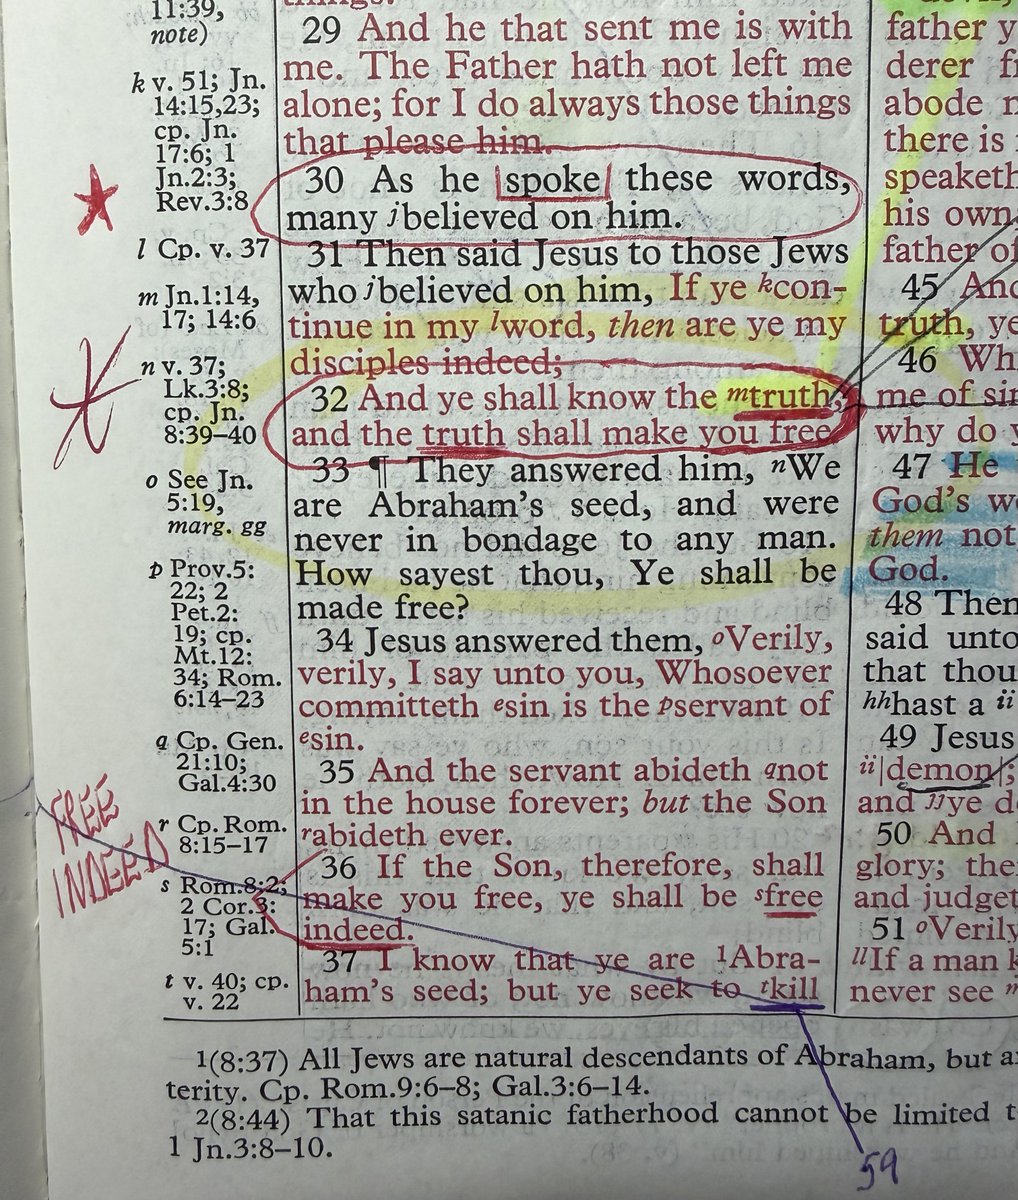 11:39,
note)
k v. 51; Jn.
14:15,23;
cp. Jn.
17:6; 1
Jn.2:3;
Rev.3:8
l Cp. v. 37
m Jn.1:14,
17; 14:6
n v. 37;
Lk.3:8;
cp. Jn.
8:39–40
o See Jn.
5:19,
marg. gg
p Prov.5:
22; 2
Pet.2:
19; cp.
Mt.12:
34; Rom.
6:14–23
q Cp. Gen.
21:10;
Gal.4:30
r Cp. Rom.
8:15–17
s Rom.8:2;
2 Cor.3:
17; Gal.
5:1
t v. 40; cp.
v. 22
FREE
INDEED
things.
29 And he that sent me is with
me. The Father hath not left me
alone; for I do always those things
that please him.
30 As he |spoke| these words,
many jbelieved on him.
31 Then said Jesus to those Jews
who jbelieved on him, If ye kcon-
tinue in my lword, then are ye my
disciples indeed;
32 And ye shall know the mtruth,
and the truth shall make you free.
33 ¶ They answered him, nWe
are Abraham's seed, and were
never in bondage to any man.
How sayest thou, Ye shall be
made free?
34 Jesus answered them, oVerily,
verily, I say unto you, Whosoever
committeth esin is the pservant of
esin.
35 And the servant abideth qnot
in the house forever; but the Son
rabideth ever.
36 If the Son, therefore, shall
make you free, ye shall be sfree
indeed.
37 I know that ye are 1Abra-
ham's seed; but ye seek to tkill
father
derer
abode
there is
speaketh
his own,
father of
45 And
truth, ye
46
me of sin
why do
47 He
God's
them not
God.
48 Then
said unto
that thou
hhhast a ii
49 Jesus
ii|demon|;
and jjye
50 And
glory;
and
51 oVerily
llIf a man
never see
1(8:37) All Jews are natural descendants of Abraham, but
terity. Cp. Rom.9:6–8; Gal.3:6–14.
2(8:44) That this satanic fatherhood cannot be limited
1 Jn.3:8–10.
59